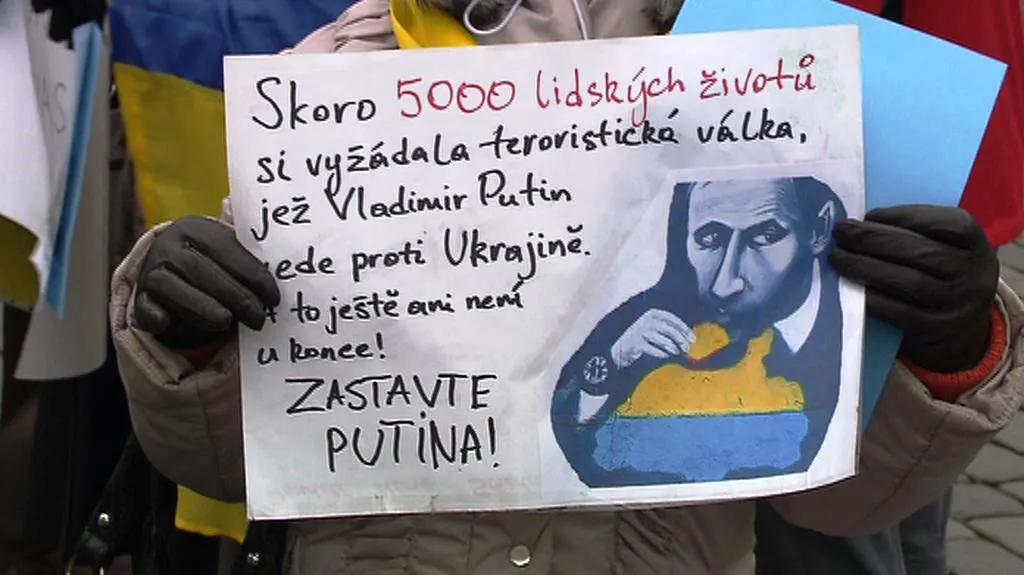 Skoro 5000 lidských životů
si vyžádala teroristická válka,
jež Vladimir Putin
ede proti Ukrajině.
to ještě ani není
u konce!
ZASTAVTE
PUTINA!